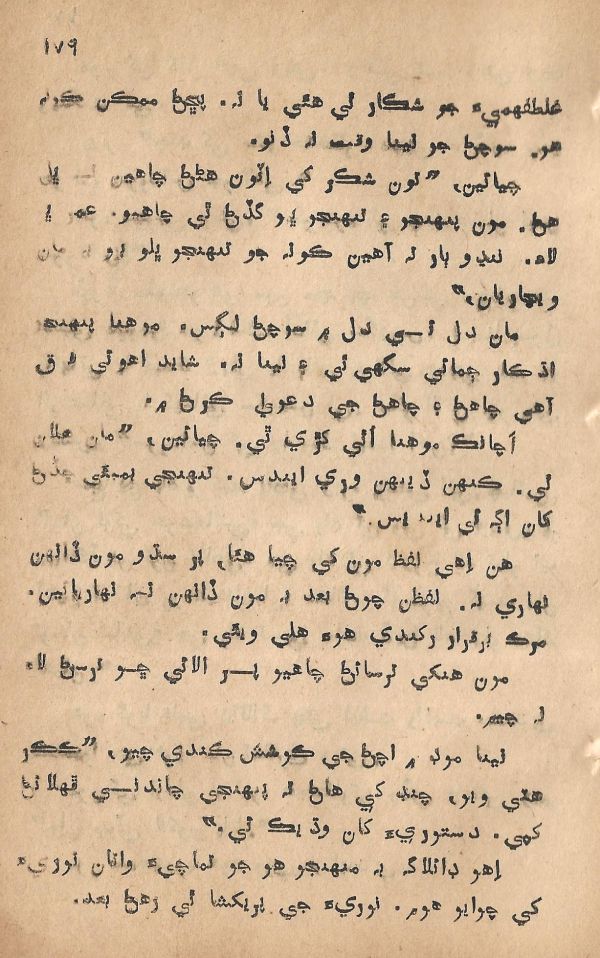 ١٧٩
غلطفهميءَ جو شڪار ٿي هئي يا نہ. پڇڻ ممڪن ڪونہ
هو. سوچڻ جو نينا وقت نہ ڏنو.
چيائين، ”تون شڪر کي اِئون هڻڻ چاهين ٿو
هڻ. مون پنهنجو ۽ تنهنجو گڏڻ ٿي چاهيو. عمر
لاءِ. ننڍو ٻار تہ آهين ڪونہ جو تنهنجو ڀلو مان
ويچاريان.“
مان دل ئي دل ۾ سوچڻ لڳس. موهنا پنهنجو
اڌڪار ڄمائي سگهي ٿي ۽ نينا نہ. شايد اهوئي فرق
آهي چاهڻ ۽ چاهڻ جي دعويٰ ڪرڻ ۾.
اَچانڪ موهنا اُٿي کڙي ٿي. چيائين، ”مان هلان
ٿي. ڪنهن ڏينهن وري ايندس. تنهنجي بمبئي ڇڏڻ
کان اڳ ئي ايندس.“
هن اِهي لفظ مون کي چيا هئا، پر سڌو مون ڏانهن
نهاري نہ. لفظن چوڻ بعد بہ مون ڏانهن نہ نهاريائين.
مرڪ برقرار رکندي هوءَ هلي ويئي.
مون هنکي ترسائڻ چاهيو پر الائي ڇو ترسڻ لاءِ
نہ چيم.
نينا موڊ ۾ اچڻ جي ڪوشش ڪندي چيو، ”ڪڪر
هٽي ويو، چنڊ کي هاڻ تہ پنهنجي چاندني ڦهلائڻ
کپي. دستوريءَ کان وڌيڪ ئي.“
اِهو ڊائلاگ بہ منهنجو هو جو تماچيءَ واتان نوريءَ
کي چوايو هوم. نوريءَ جي پريکشا ٿي رهڻ بعد.